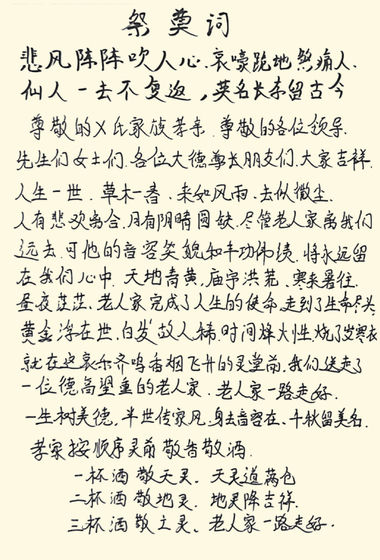 祭奠词
悲风阵阵吹人心、哀嚎跪地煞痛人、
仙人一去不复返，英名长存留古今
尊敬的X氏家族孝亲、尊敬的各位领导、
先生们女士们、各位大德尊长朋友们、大家吉祥、
人生一世、草木一春、来如风雨、去似微尘、
人有悲欢离合、月有阴晴圆缺、尽管老人家离我们
远去、可他的音容笑貌和丰功伟绩、将永远留
在我们心中、天地青黄、庙宇洪荒、寒来暑往、
昼夜茫茫、老人家完成了人生的使命、走到了生命尽头
黄金浮在世、白发故人稀、时间烽火烧了寒衣
就在这哀乐齐鸣香烟飞升的灵堂前、我们送走了
一位德高望重的老人家、老人家一路走好、
一生树美德，半世传家风、身去音容在、千秋留美名、
孝家按顺序灵前敬香敬酒、
一杯酒敬天灵、天灵道满仓
二杯酒敬地灵、地灵降吉祥、
三杯酒敬土灵、老人家一路走好、